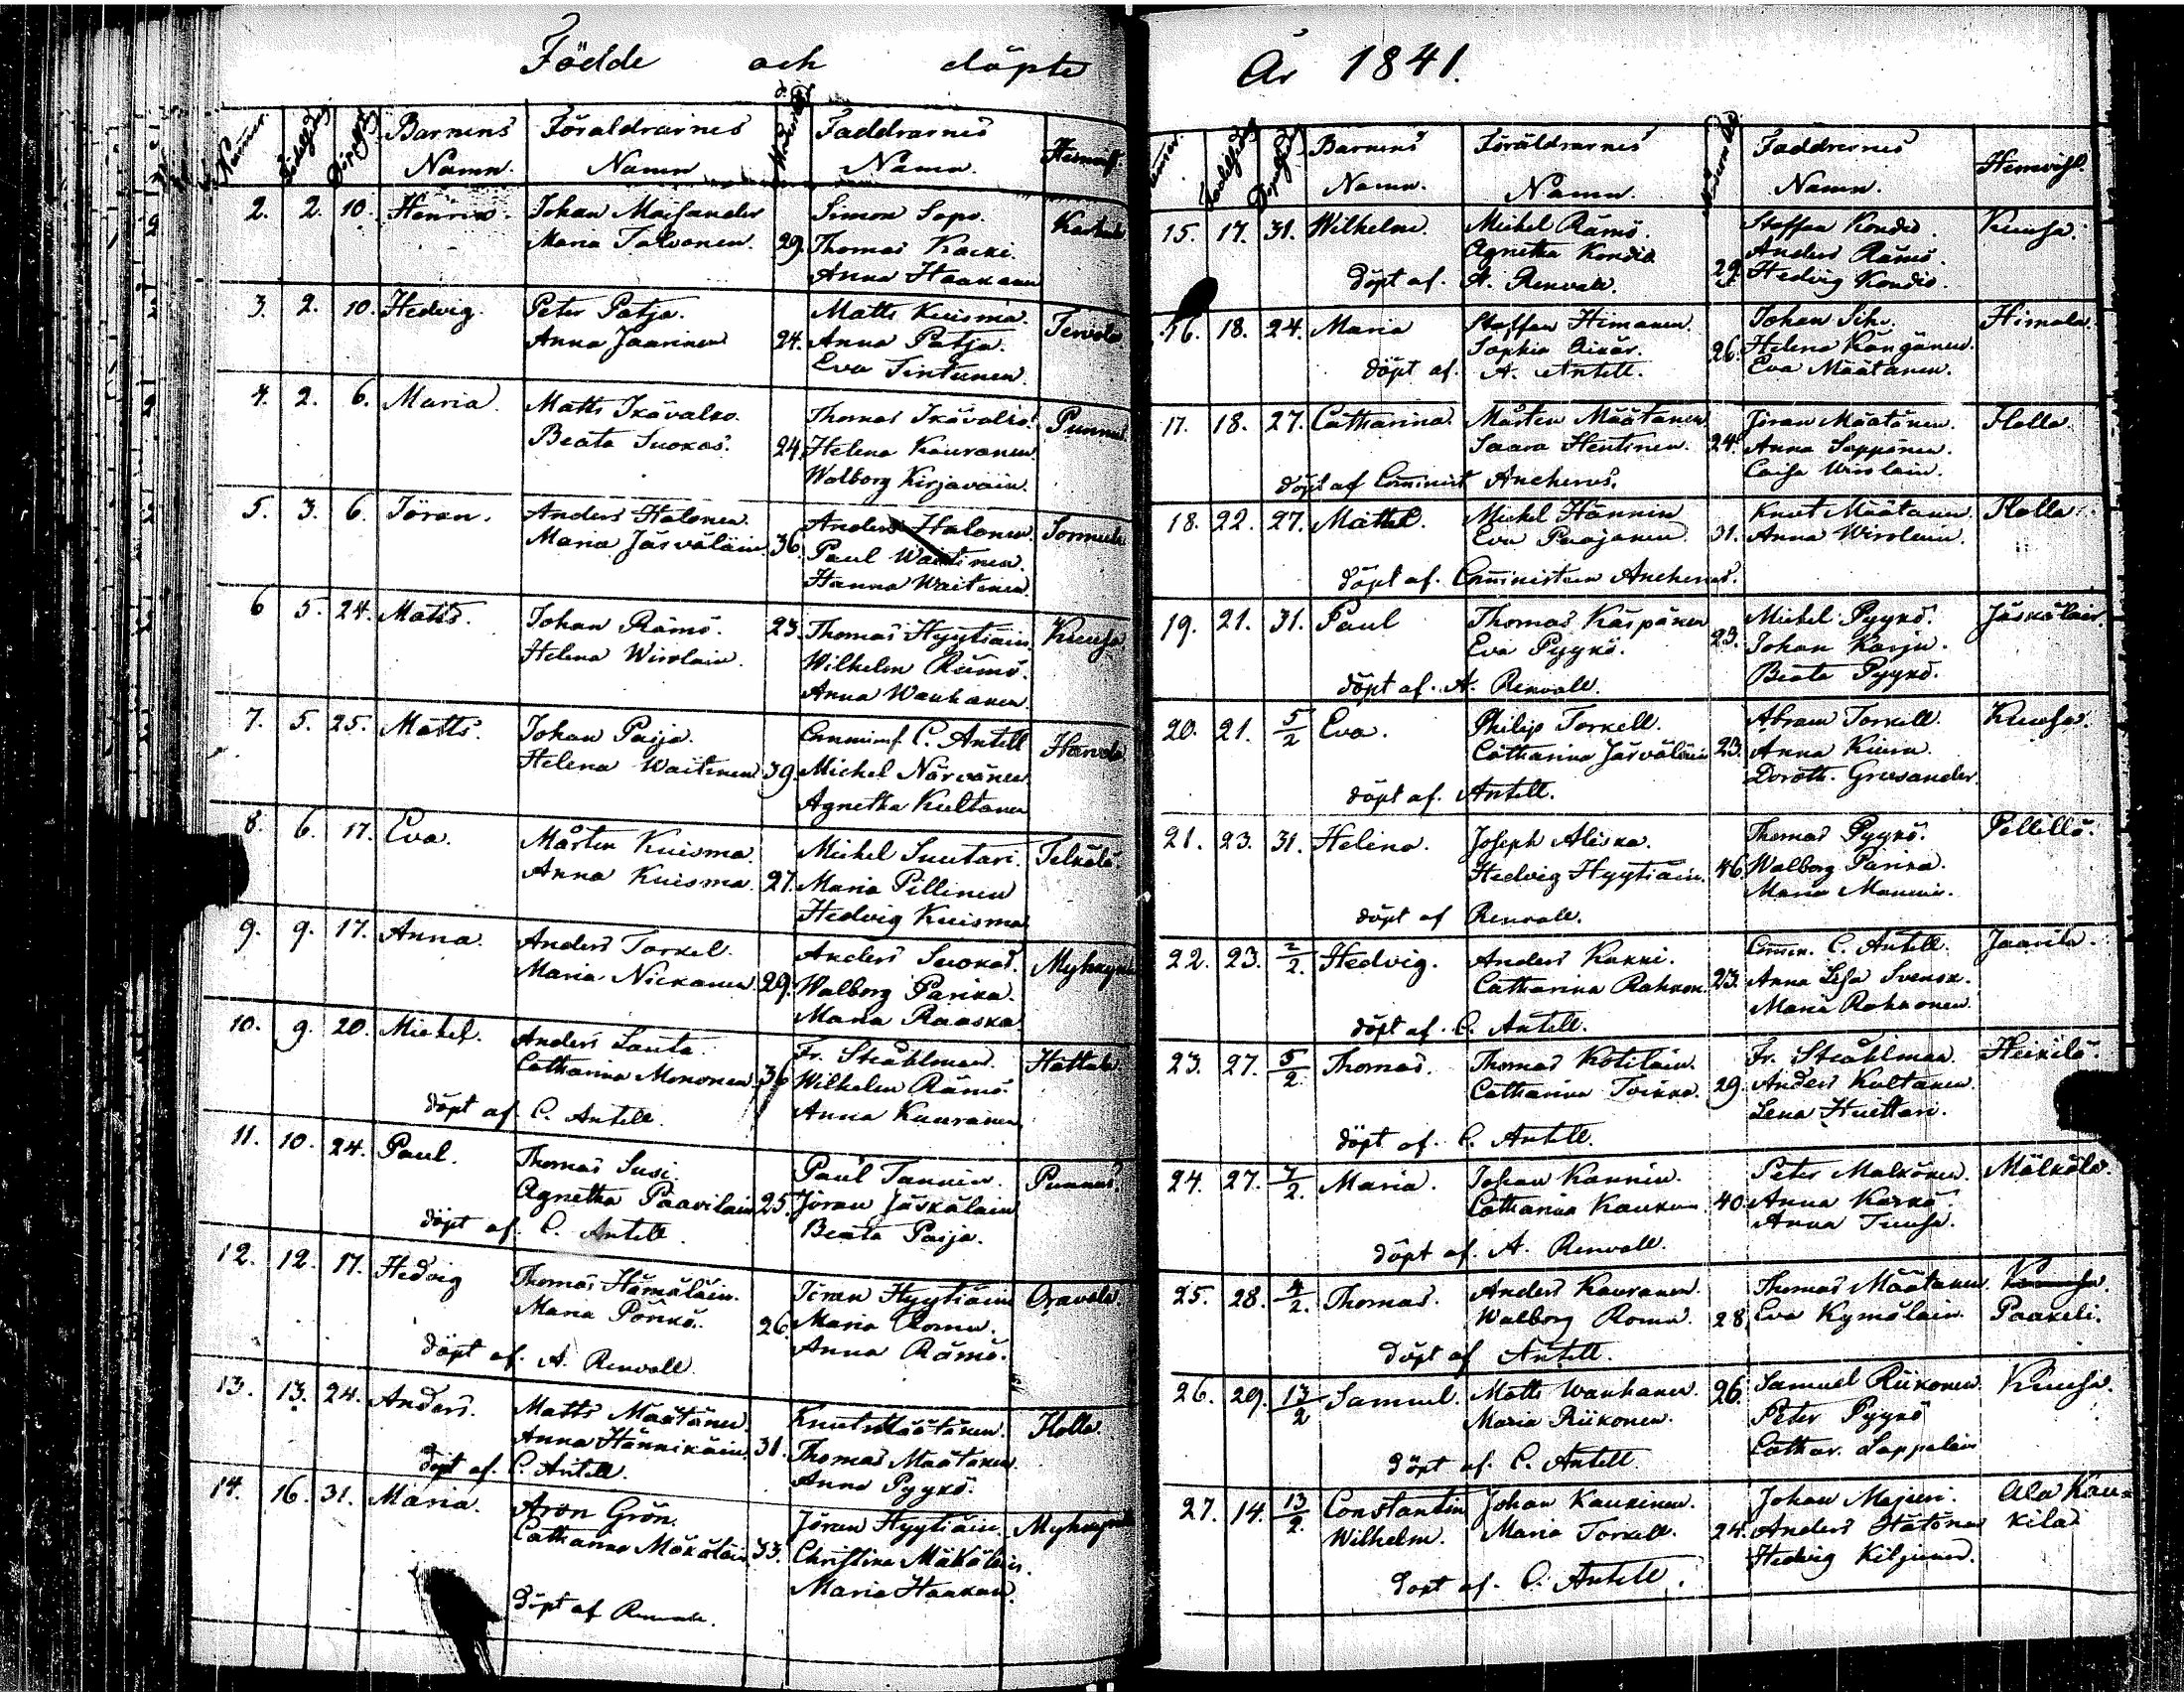 Födde och döpte
Barnens Namn. Föräldrarnes Namn Faddrarnes Namn. Hemvist
2. 2. 10. Henric. Johan Maisander Simon Sopo.
Maria Talvonen. 29. Thomas Kacki.
Anna Haakanen
3. 2. 10. Hedvig. Peter Patja. Matts Kuisma. Tervola
Anna Jaarinen 24. Anna Patja.
Eva Tintunen.
4. 2. 6. Maria. Matts Ikävalko. Thomas Ikävalko. Punnus
Beata Suokas. 24. Helena Kauranen.
Walborg Kirjavain.
5. 3. 6. Jöran. Anders Halonen. Anders Halonen. Sormula
Maria Järväläin 36. Paul Waitinen.
Hanna Waitinen
6 5. 24. Matts. Johan Rämö. 23. Thomas Hyytiäin. Kuusa
Helena Wirolain. Wilhelm Rämö.
Anna Wanhanen
7. 5. 25. Matts. Johan Paija. Comminist. C. Antell
Helena Waitinen 39. Michel Närvänen
Agnetha Kultanen
8. 6. 17. Eva. Mårten Kuisma. Michel Suutari. Telkälä
Anna Kuisma. 27. Maria Pillinen
Hedvig Kuisma
9. 9. 17. Anna. Anders Torkel. Anders Suokas.
Maria Nickanen. 29. Walborg Parika.
Maria Raaska
10. 9. 20. Michel. Anders Lanta. Fr. Stråhlman.
Catharina Mononen 36 Wilhelm Rämö.
döpt af C. Antell. Anna Kauranen
11. 10. 24. Paul. Thomas Susi. Paul Tannin. Punnus.
Agnetha Paavilain 25. Jöran Jäskäläin
döpt af C. Antell. Beata Paija.
12. 12. 17. Hedvig Thomas Hämäläin. Jöran Hyytiäin Oravala.
Maria Pönkö. 26. Maria Roma.
döpt af. A. Renvall. Anna Rämö.
13. 13. 24. Anders. Matts Määtänen Knut Määtänen. Holla.
Anna Hännikäin. 31. Thomas Määtänen.
döpt af. C. Antell. Anna Pyykö.
14. 16. 31. Maria. Aron Grön. Jöran Hyytiäin.
Catharina Mäkäläin. 33. Christina Mäkäläin.
Maria Haakan.
döpt af Renvall.
År 1841.
Barnens Namn. Föräldrarnes Namn. Faddrarnes Namn. Hemvist.
15. 17. 31. Wilhelm. Michel Rämö. Staffan Kondio. Kuusa.
Agnetha Kondio Anders Rämö.
döpt af. A. Renvall. 29. Hedvig Kondio.
16. 18. 24. Maria Staffan Himanen. Johan Sih. Himala.
Sophia 26. Helena Kängänen.
döpt af. A. Antell. Eva Määtänen.
17. 18. 27. Catharina. Mårten Määtänen Jöran Määtänen. Holla
Saara Hentinen. 24. Anna Seppänen.
Caisa Wirolain.
döpt af Comminist Ancherus.
18. 22. 27. Matts. Michel Hännin Knut Määtänen. Holla.
Eva Paajanen. 31. Anna Wirolain.
döpt af. Comministern Ancherus.
19. 21. 31. Paul Thomas Käspänen Michel Pyykö. Jäskäläin.
Eva Pyykö. 23. Johan Karju.
döpt af. A. Renvall. Beata Pyykö.
20. 21. 5/2 Eva. Philip Torkell. Abram Torkell. Kuusa.
Catharina Järväläin 23. Anna Kuisma.
Doroth. Grusander.
döpt af. Antell.
21. 23. 31. Helena. Joseph Aliska. Thomas Pyykö. Pellilä.
Hedvig Hyytiäin. 46. Walborg Parika.
Maria Mannin.
döpt af Renvall.
22. 23. 2/2. Hedvig. Anders Kakki. Commin. C. Antell. Jaarila.
Catharina Rahkon. 23. Anna Lisa Svensk.
Maria Rahkonen
döpt af. C. Antell.
23. 27. 5/2 Thomas. Thomas Kotilain. Fr. Stråhlman. Heikilä.
Catharina Toikka. 29. Anders Kultanen.
Lena Huettari.
döpt af. C. Antell.
24. 27. 7/2. Maria. Johan Kannin. Peter Malkönen. Mälkölä.
Catharina Kaukon. 40. Anna Karkö.
Anna Tuusa.
döpt af. A. Renvall.
25. 28. 4/2. Thomas. Anders Kauranen. Thomas Määtänen. Kuusa.
Walborg Roma. 28. Eva Kymäläin. Paakeli.
döpt af Antell.
26. 29. 13/2 Samuel. Matts Wanhanen. 26. Samuel Riikonen. Kuusa.
Maria Riikonen. Peter Pyykö
Cathar. Lappalain
döpt af. C. Antell.
27. 14. 13/2. Constantin Johan Kaukinen. Johan Majuri. Ala Kau-
Wilhelm. Maria Torkell. 24. Anders Hätönen kila
Hedvig Kiljunen.
döpt af. C. Antell.